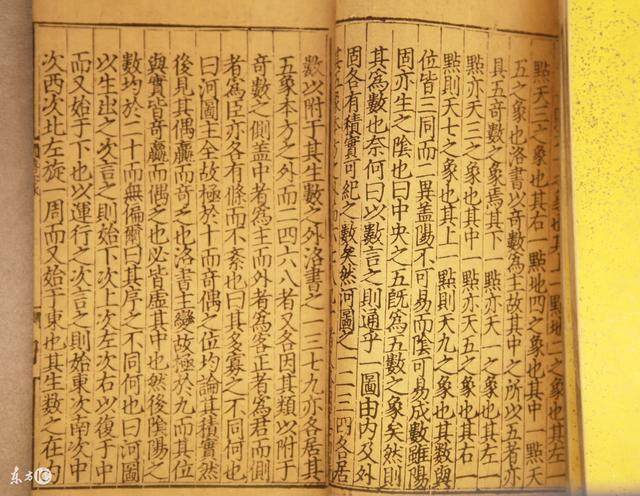 之象也其上一點地二之象也其左
點天三之象也其右一點地四之象也其中一點天
五之象也洛書以奇數爲主故其中之所以五者亦
具五奇數之象焉其下一點亦天一之象也其左一
點亦天三之象也其中一點亦天五之象也其右一
點則天七之象也其上一點則天九之象也其數與
位皆三同而二異蓋陽不可易而陰可易成數雖陽
固亦生之陰也曰中央之五既爲五數之象矣然則
其爲數也奈何曰以數言之則通乎一圖由內及外
固各有積實可紀之數矣然河圖之一二三四各居
其五象本方之外而六七八九十者又各因五而得
數以附于其生數之外洛書之一三七九亦各居其
五象本方之外而二四六八者又各因其類以附于
奇數之側蓋中者爲主而外者爲客正者爲君而側
者爲臣亦各有條而不紊也曰其多寡之不同何也
曰河圖主全故極於十而奇偶之位均論其積實然
後見其偶贏而奇乏也洛書主變故極於九而其位
與實皆奇贏而偶乏也必皆虛其中也然後陰陽之
數均於二十而無偏爾曰其序之不同何也曰河圖
以生出之次言之則始下次上次左次右以復于中
而又始于下也以運行之次言之則始東次南次中
次西次北左旋一周而又始于東也其生數之在內
东方IC